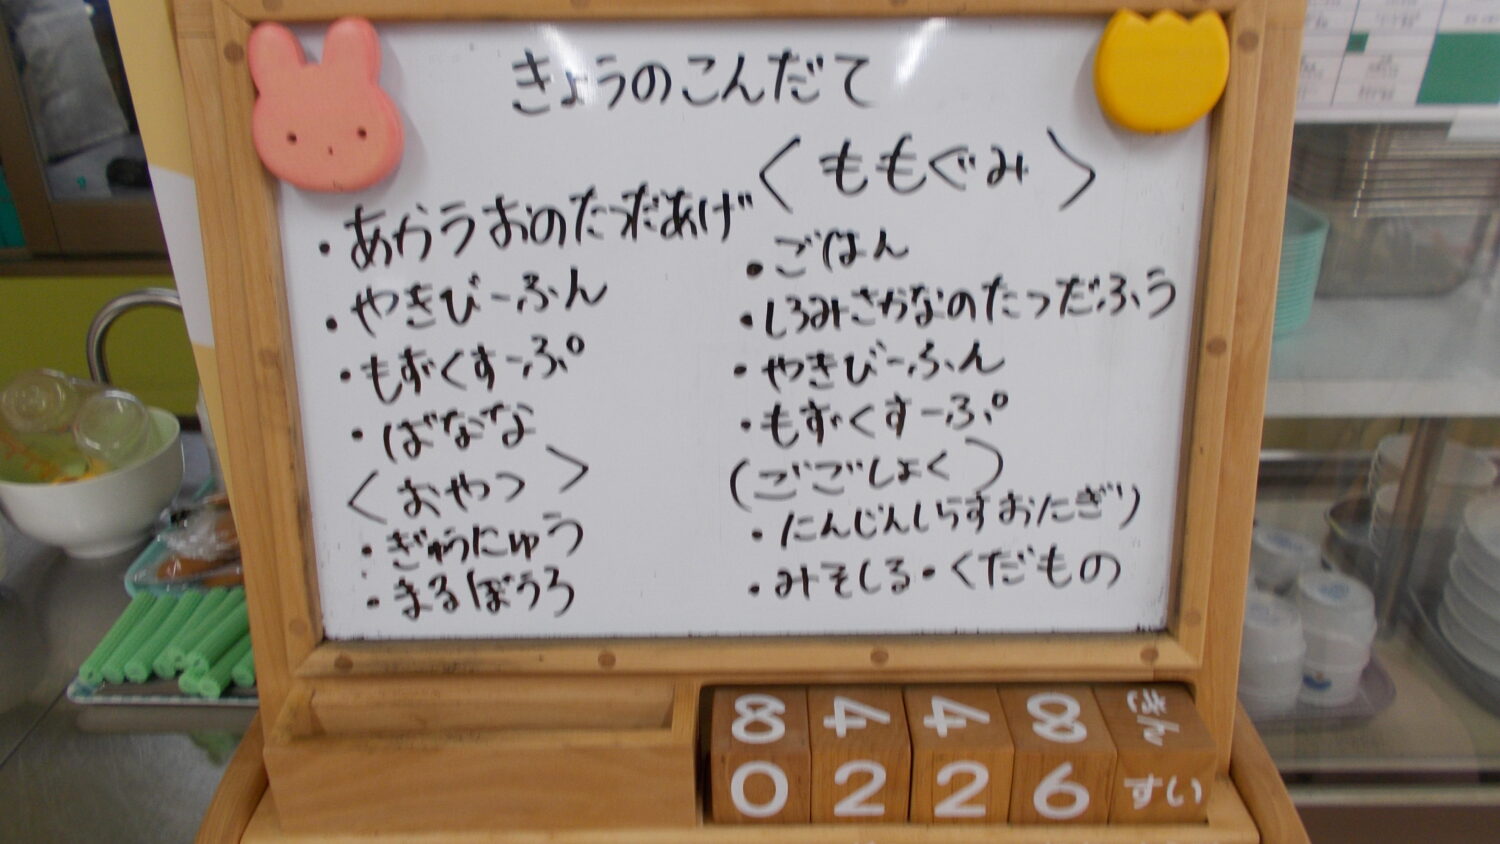 きょうのこんだて
・あかうおのたつだあげ
・やきびーふん
・もずくすーぷ
・ばなな
〈おやつ〉
・ぎゅうにゅう
・まるぼうろ
〈ももぐみ〉
・ごはん
・しろみさかなのたつだふう
・やきびーふん
・もずくすーぷ
(ごごしょく)
・にんじんしらすおにぎり
・みそしる・くだもの
8 4 4 8 きん
0 2 2 6 すい